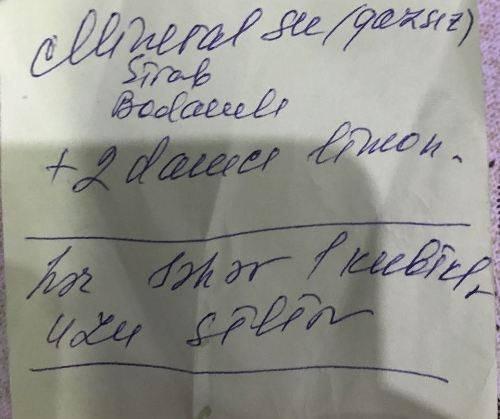 Mineral su (qazsız)
Sirab
Badamlı
+ 2 damcı limon.
hər səhər 1 kubikl
üzü silir